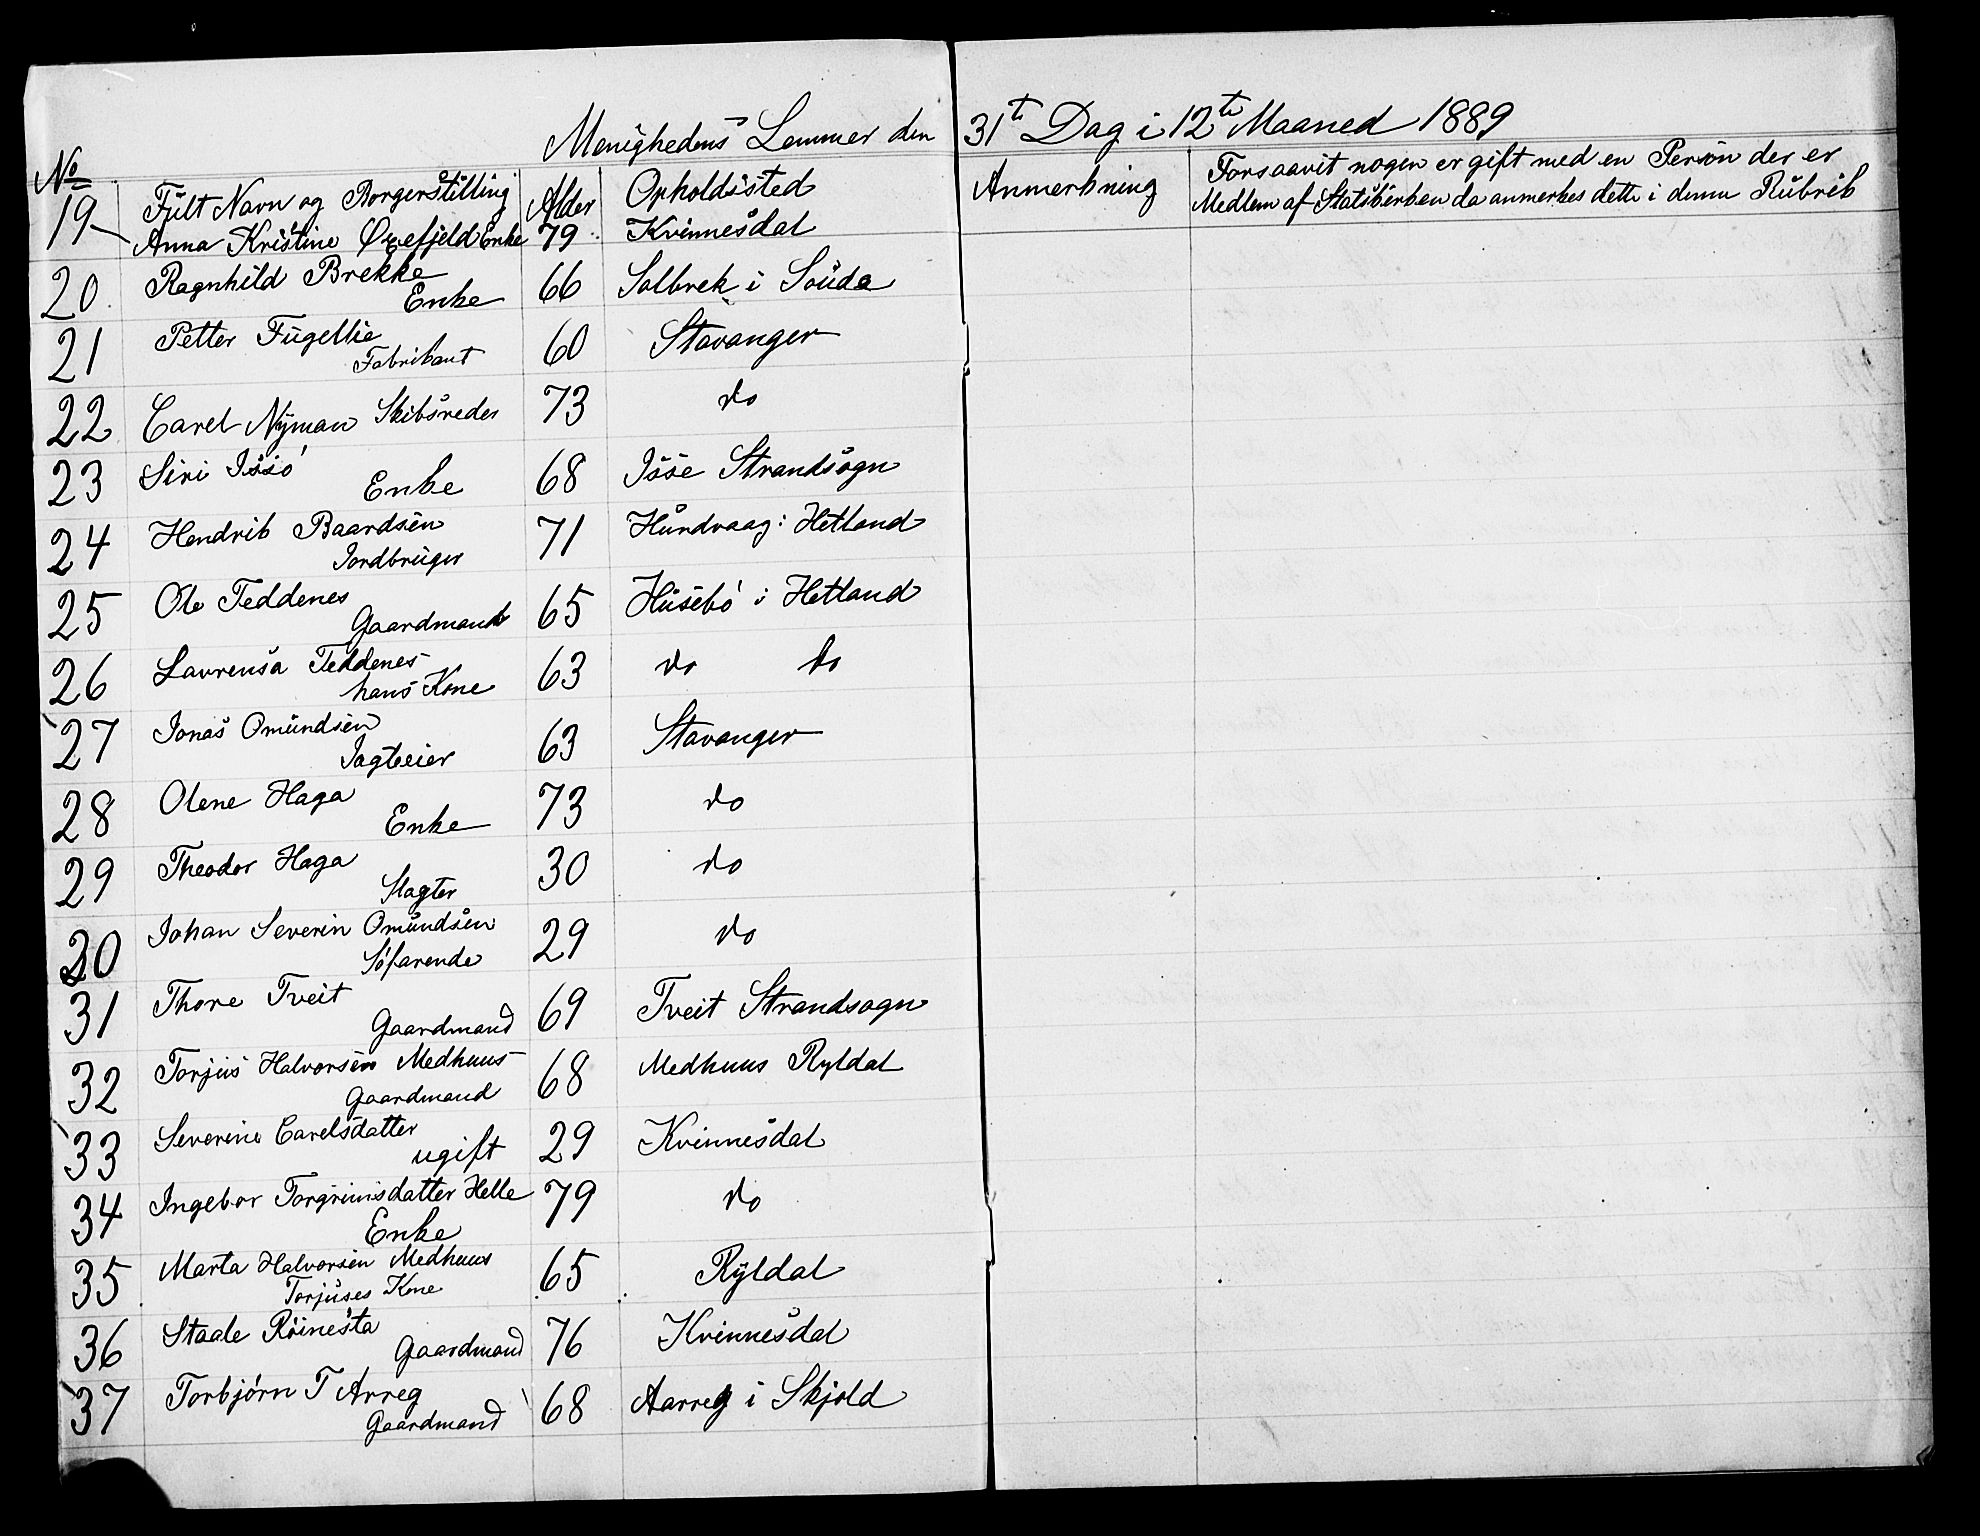 Menighedens Lemmer den 31te Dag i 12te Maaned 1889
No Fült Navn og Borgerstilling Alder Opholdssted Anmerkning Forsaavit nogen er gift med en Person der er
Medlem af Statskirken da anmerkes dette i denne Rübrik
19 Anna Kristine Øxefjeld Enke 79 Kvinnesdal
20 Ragnhild Brekke
Enke 66 Solbrek i Soude
21 Petter Fügellie
Fabrikant 60 Stavanger
22 Carel Nÿman Skibsreder 73 do
23 Siri Issió
Enke 68 Isse Strandsogn
24 Hendrik Baardsen
Jordbrüger 71 Hündvaag i Hetland
25 Ole Teddenes
Gaardmand 65 Hüsebó i Hetland
26 Lavrensa Teddenes
hans Kone 63 do do
27 Jonas Omündsen
Jagteeier 63 Stavanger
28 Olene Haga
Enke 73 do
29 Theodor Haga
Slagter 30 do
30 Johan Severin Omündsen
Sófarende 29 do
31 Thore Tveit
Gaardmand 69 Tveit Strandsogn
32 Torjüs Halvorsen Medhuus
Gaardmand 68 Medhuus Ryldal
33 Severine Carelsdatter
ugift 29 Kvinnesdal
34 Ingebor Torgrimsdatter Helle 79 do
Enke
35 Marta Halvorsen Medhuus
Torjüses Kone 65 Rÿldal
36 Staale Róinesta
Gaardmand 76 Kvinnesdal
37 Torbjórn T Arreg
Gaardmand 68 Aarreg i Skjold